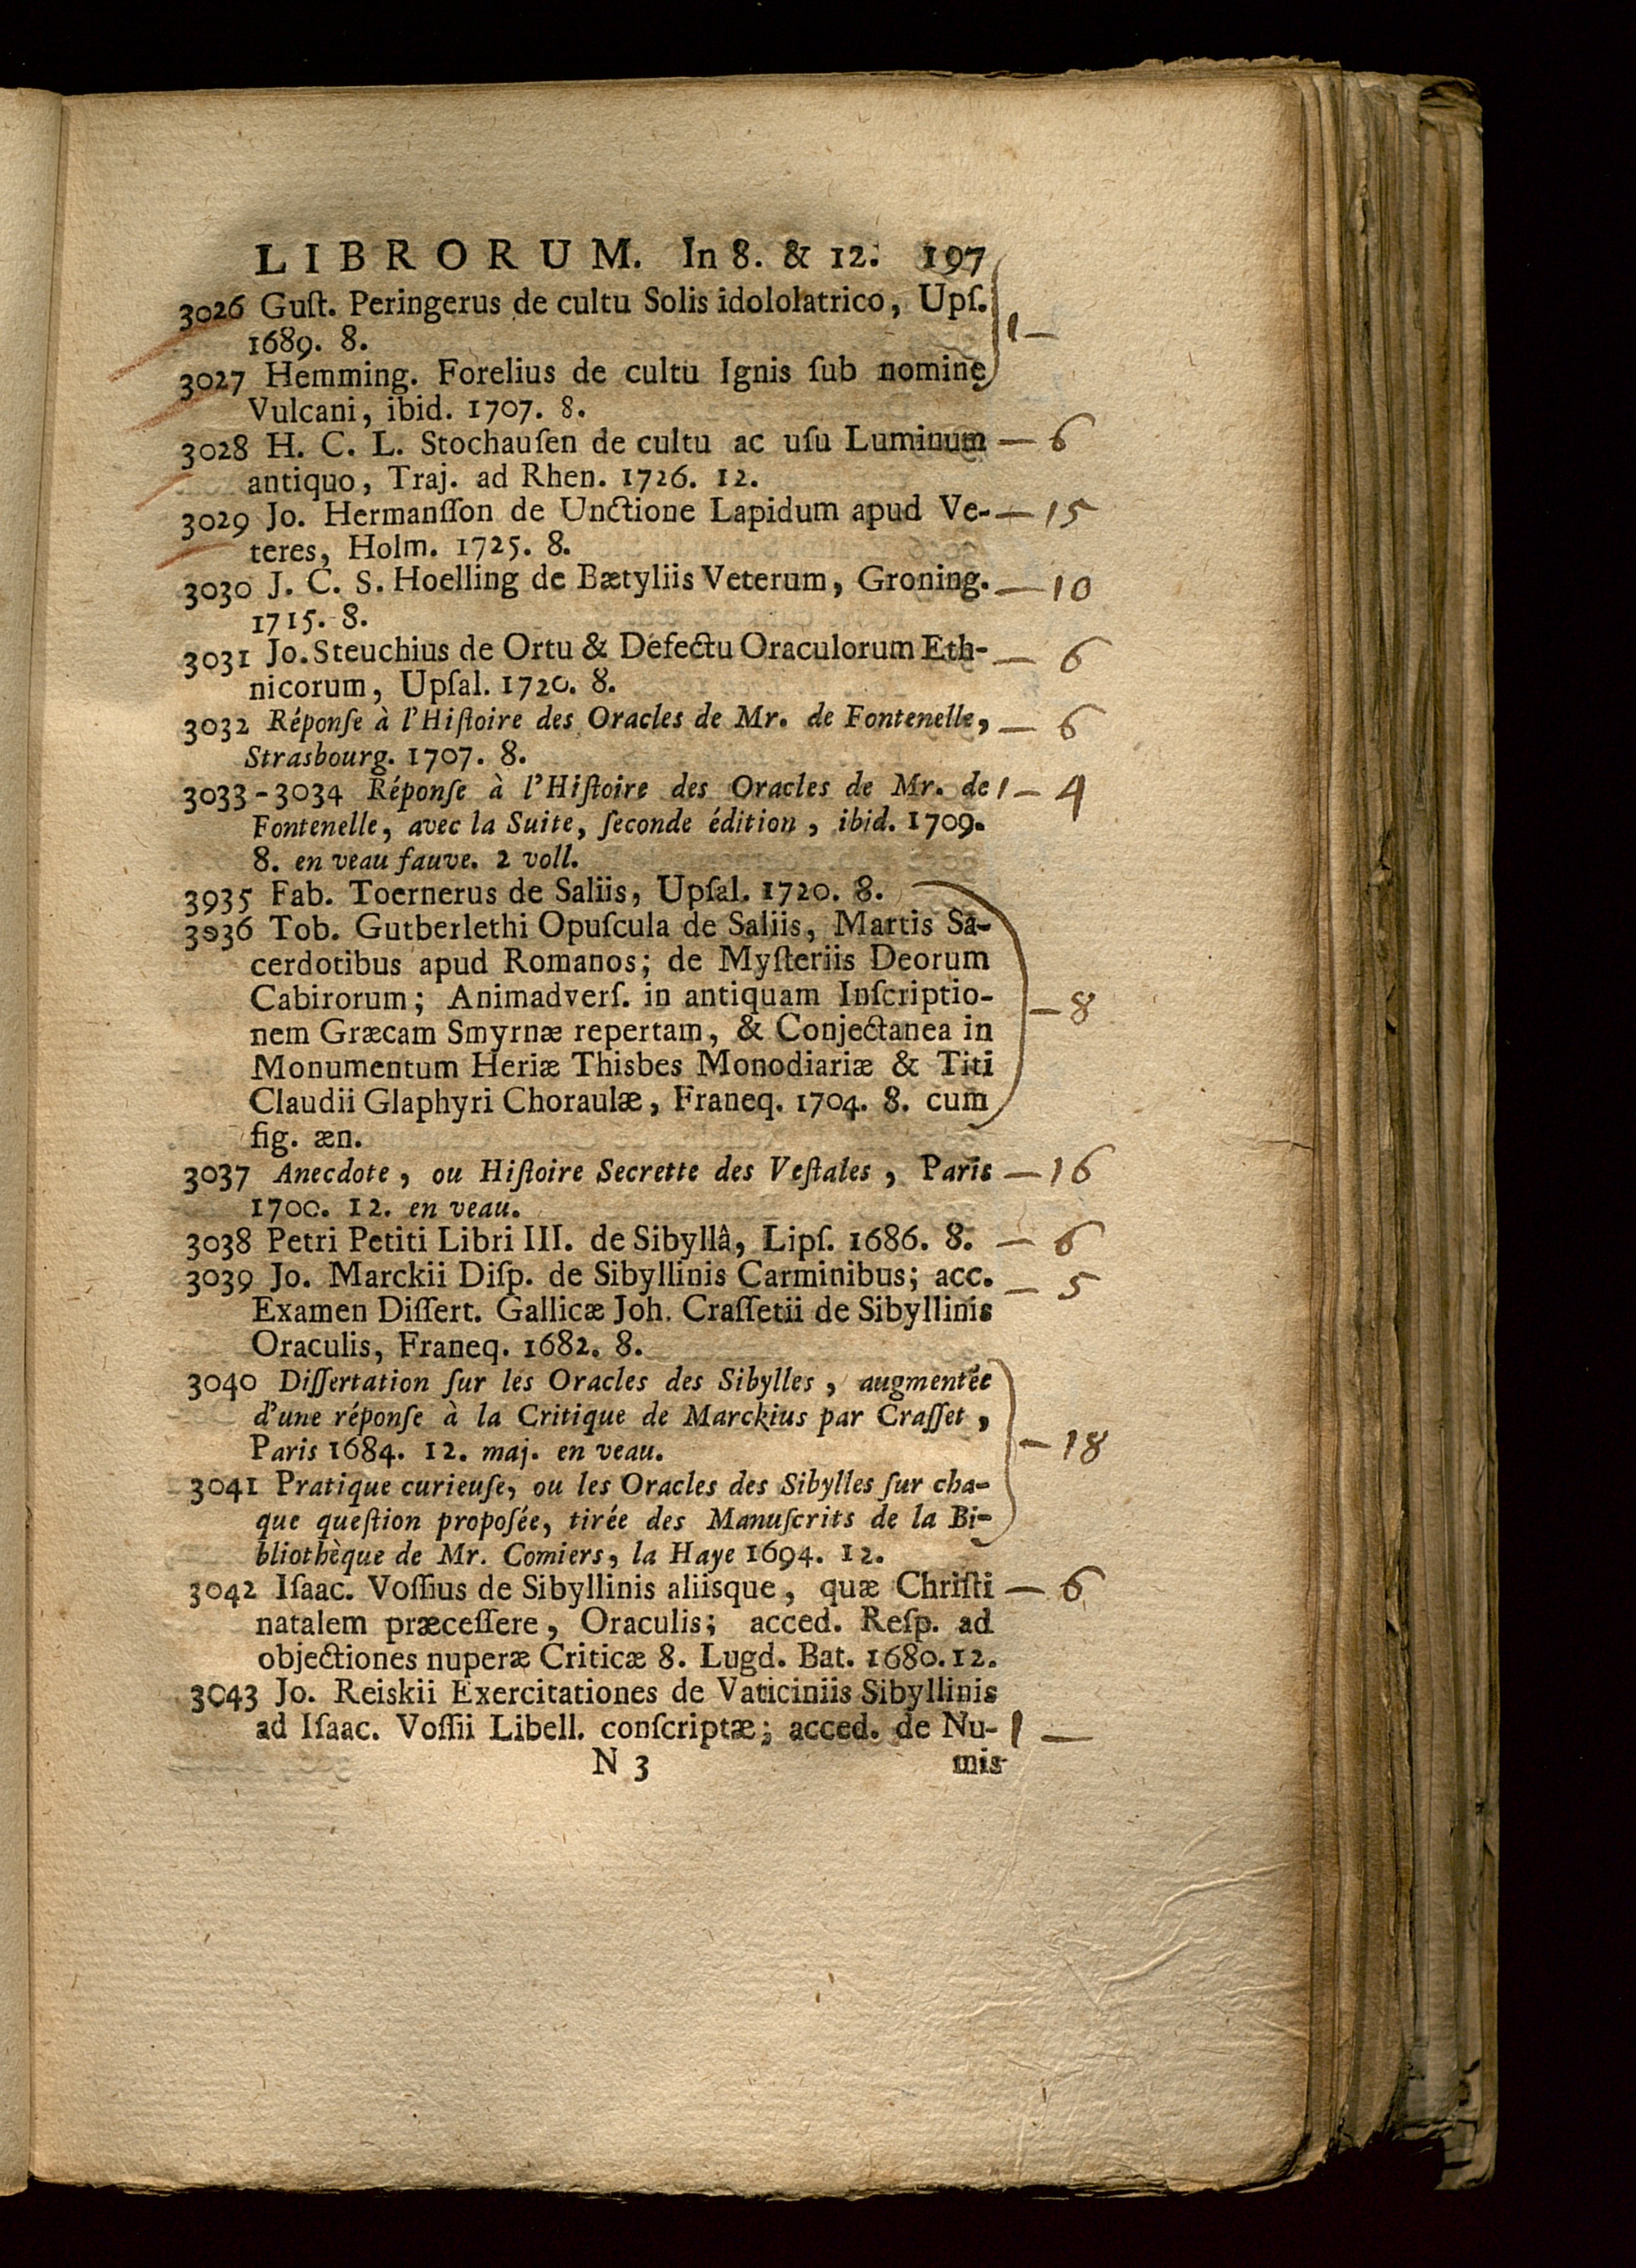 LIBRORUM. In 8. & 12. 197
3026 Guſt. Peringerus de cultu Solis idololatrico, Upſ.
1689. 8.
1 —
3027 Hemming. Forelius de cultu Ignis ſub nomine
Vulcani, ibid. 1707. 8.
3028 H. C. L. Stochauſen de cultu ac uſu Luminum — 6
antiquo, Traj. ad Rhen. 1726. 12.
3029 Jo. Hermanſſon de Unctione Lapidum apud Ve- — 15
teres, Holm. 1725. 8.
3030 J. C. S. Hoelling de Bætyliis Veterum, Groning. — 10
1715. 8.
3031 Jo. Steuchius de Ortu & Defectu Oraculorum Eth- — 6
nicorum, Upſal. 1720. 8.
3032 Réponſe à l'Hiſtoire des Oracles de Mr. de Fontenelle, — 6
Strasbourg. 1707. 8.
3033-3034 Réponſe à l'Hiſtoire des Oracles de Mr. de 1 — 4
Fontenelle, avec la Suite, ſeconde édition, ibid. 1709.
8. en veau fauve. 2 voll.
3935 Fab. Toernerus de Saliis, Upſal. 1720. 8.
3036 Tob. Gutberlethi Opuſcula de Saliis, Martis Sa-
cerdotibus apud Romanos; de Myſteriis Deorum
Cabirorum; Animadverſ. in antiquam Inſcriptio- — 8
nem Græcam Smyrnæ repertam, & Conjectanea in
Monumentum Heriæ Thisbes Monodiariæ & Titi
Claudii Glaphyri Choraulæ, Franeq. 1704. 8. cum
fig. æn.
3037 Anecdote, ou Hiſtoire Secrette des Veſtales, Paris — 16
1700. 12. en veau.
3038 Petri Petiti Libri III. de Sibyllâ, Lipſ. 1686. 8. — 6
3039 Jo. Marckii Diſp. de Sibyllinis Carminibus; acc. — 5
Examen Diſſert. Gallicæ Joh. Craſſetii de Sibyllinis
Oraculis, Franeq. 1682. 8.
3040 Diſſertation ſur les Oracles des Sibylles, augmentée
d'une réponſe à la Critique de Marckius par Craſſet,
Paris 1684. 12. maj. en veau. — 18
3041 Pratique curieuſe, ou les Oracles des Sibylles ſur cha-
que queſtion propoſée, tirée des Manuſcrits de la Bi-
bliothèque de Mr. Comiers, la Haye 1694. 12.
3042 Iſaac. Voſſius de Sibyllinis aliisque, quæ Chriſti — 6
natalem præceſſere, Oraculis; acced. Reſp. ad
objectiones nuperæ Criticæ 8. Lugd. Bat. 1680. 12.
3043 Jo. Reiskii Exercitationes de Vaticiniis Sibyllinis
ad Iſaac. Voſſii Libell. conſcriptæ; acced. de Nu- 1 —
N 3 mis